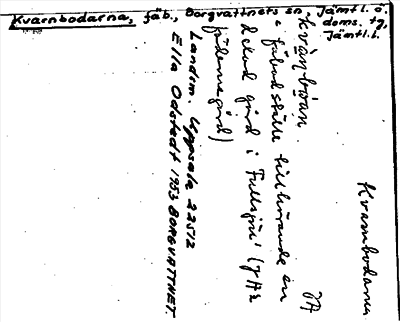 Kvarnbodarna, fäb., Borgvattnets sn, Jämtl. ö.
doms. tg,
Jämtl.l.
Kvarnbodarna
Kvänböan.
fäbodställe tillhörande en
gård i Fullsjön (JHR
fädernegård)
Landsm. Uppsala 22512
Ella Odstedt 1953 BORGVATTNET.